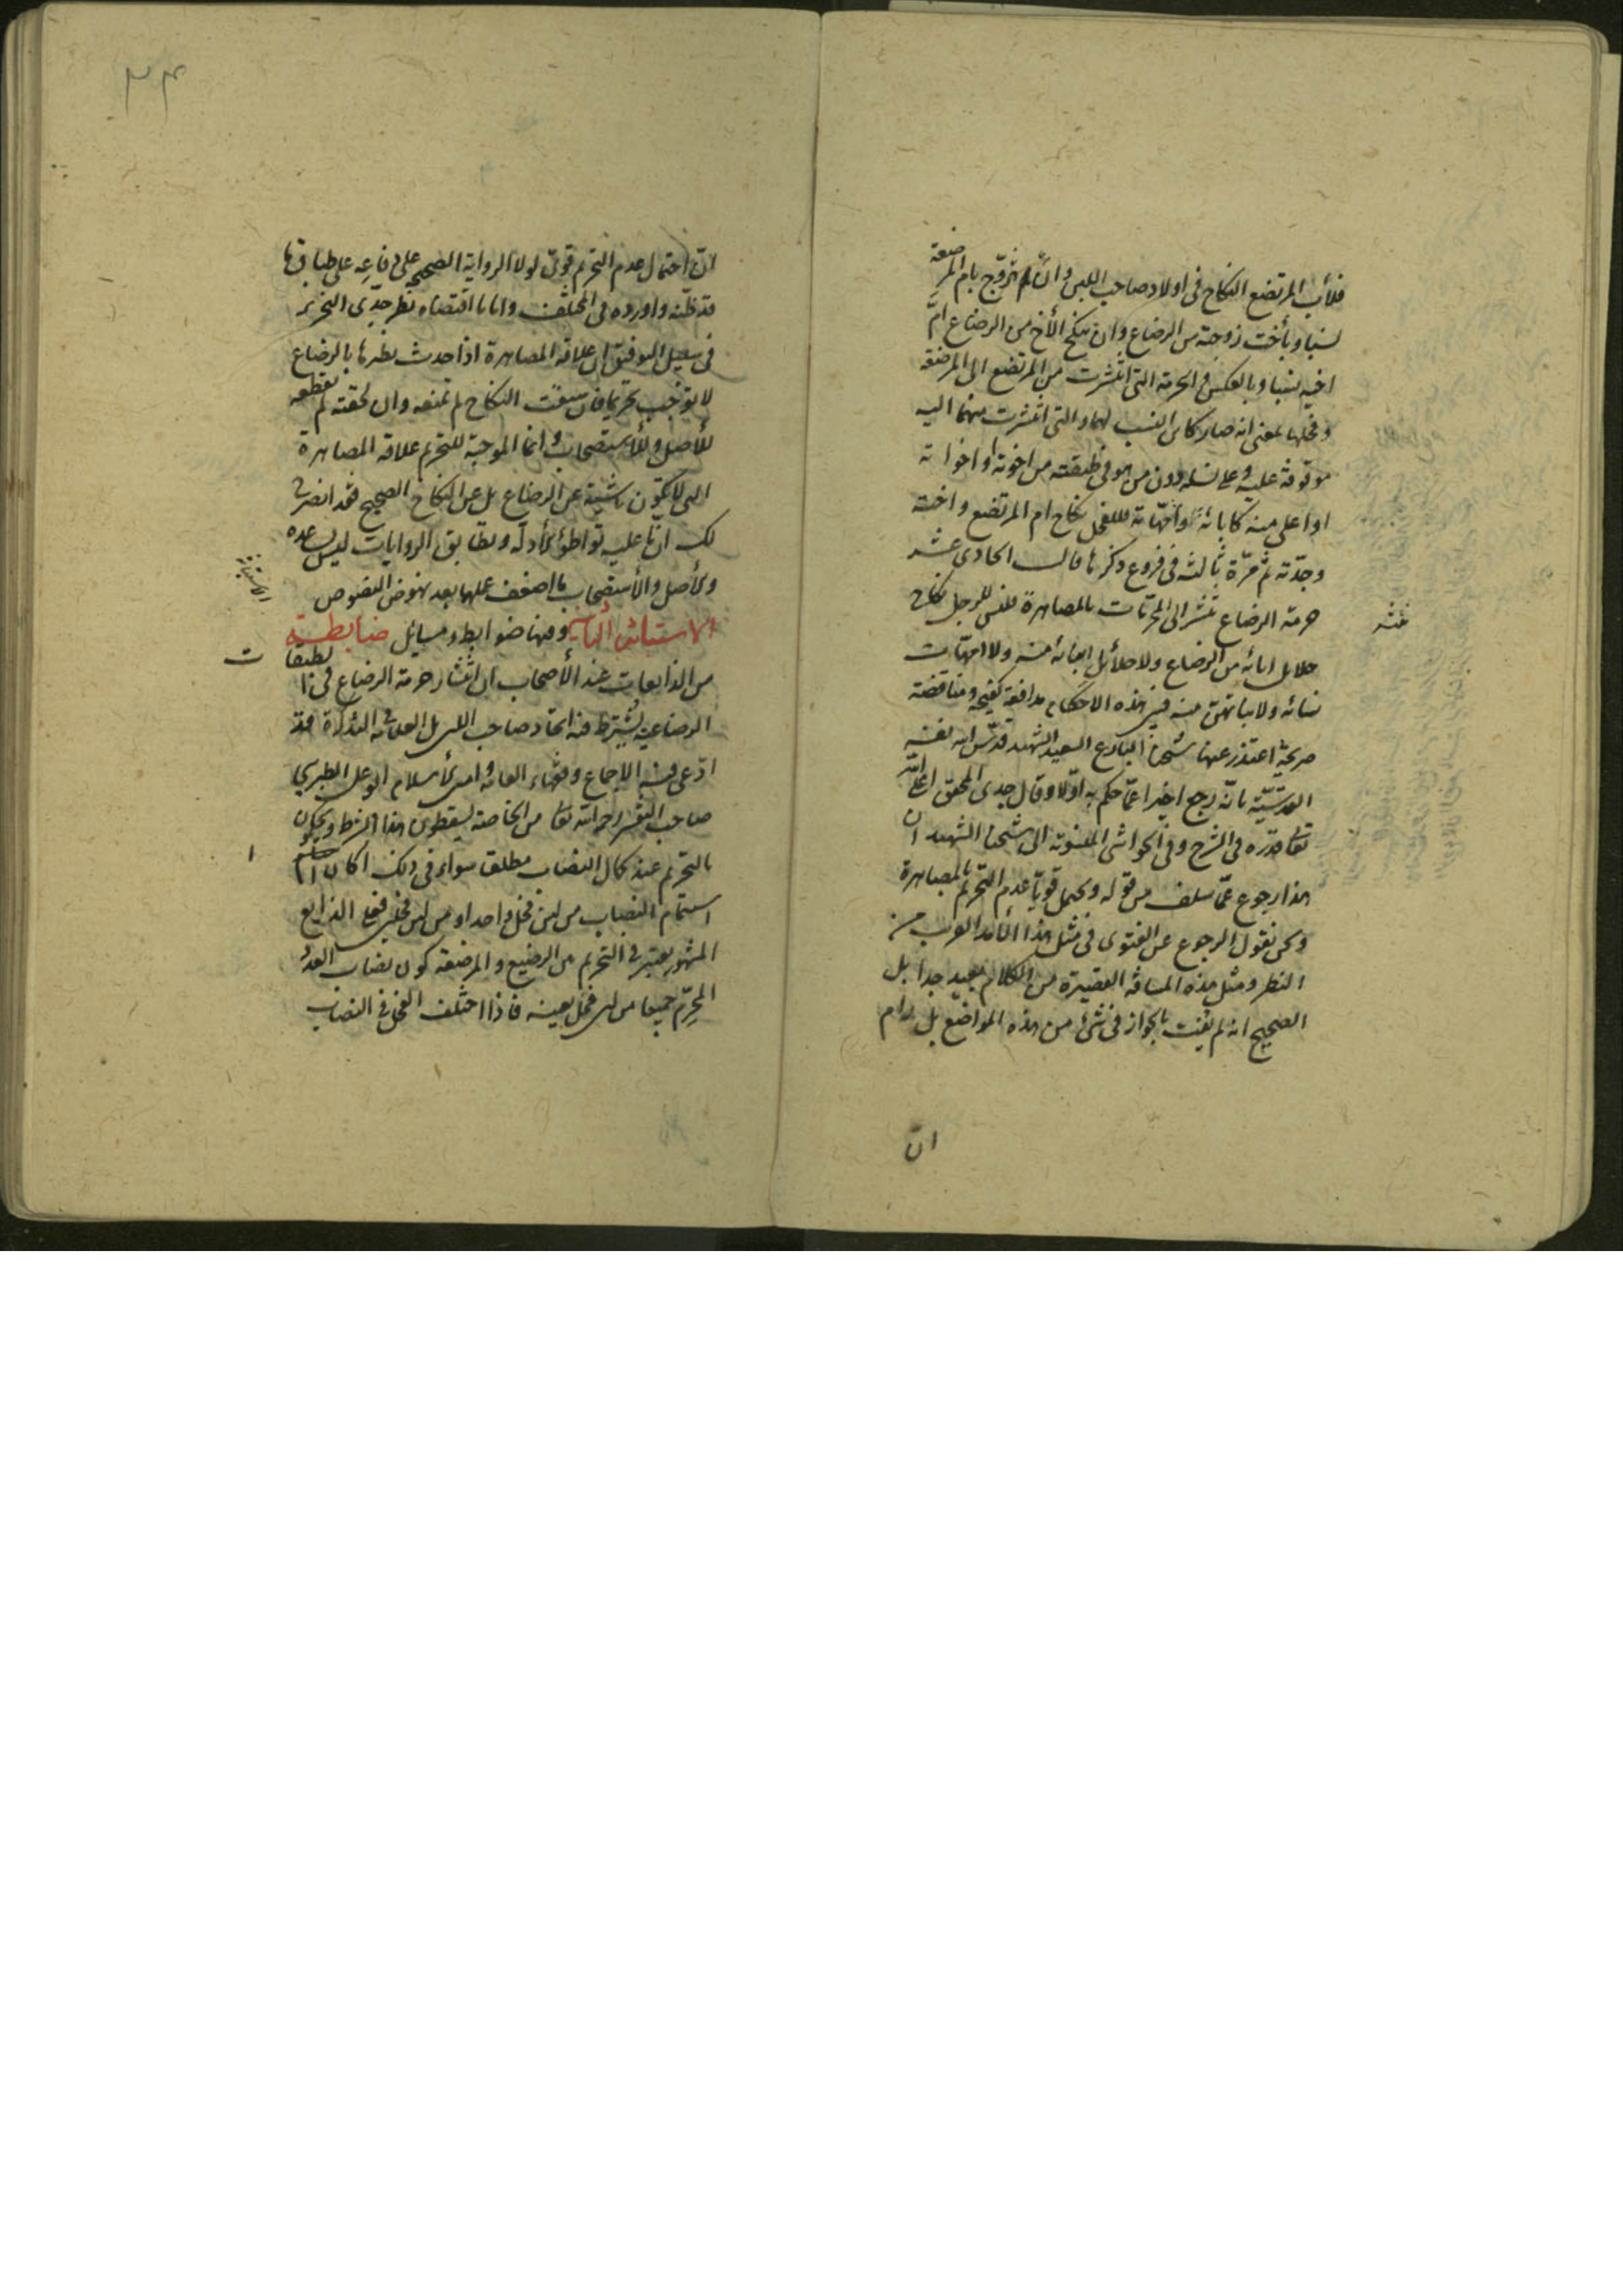 فلأب المرتضع النكاح في اولاد صاحب اللبن وان يتزوّج بام المرضعة
نسبا وبأخت زوجته من الرضاع وان ينكح الأخ من الرضاع امّ
اخيه نسبا وبالعكس في الحرمة التي انتشرت من المرتضع الى المرضعة
وفحلها بمعنى انه صار كابن النسب لهما والتي انتشرت منهما اليه
موقوفة عليه وعلى نسله دون من هو في طبقته من اخوته او اخواته
او اعلى منه كابائه وامّهاته فللفحل نكاح ام المرتضع واخته
وجدّته ثمّ مرّة ثالثة في فروع ذكرها قال الحادي عشر
حرمة الرضاع تنشر الى المحرّمات بالمصاهرة فليس للرجل نكاح
حلائل ابائه من الرضاع ولا حلائل ابنائه منه ولا امهات
نسائه ولا بناتهن منه فبين هذه الاحكام مدافعة ومناقضة
صريحة اعتذر عنها شيخنا البارع السعيد الشهيد قدّس الله نفسه
القدسيّة بانّه رجع اخيرا عمّا حكم به اوّلا وقال جدى المحقق اعلى الله
تعالى قدره في الشرح وفي الحواشي المنسوبة الى شيخنا الشهيد ان
هذا رجوع عمّا سلف من قوله ويحتمل قويّا عدم التحريم بالمصاهرة
ونحن نقول الرجوع عن الفتوى في مثل هذا القريب من
النظر ومثل هذه المسافة القصيرة من الكلام بعيد جدا بل
الصحيح انه لم يفت بالجواز في شيء من هذه المواضع بل رام
ان
٣٤
انّ احتمال عدم التحريم قويّ لولا الرواية الصحيحة على
قد ظنّه واورده في المختلف واما ما اقتضاه نظر جدّى النحرير
في سبيل التوفيق ان علاقة المصاهرة اذا حدث نظيرها بالرضاع
لا توجب تحريما فان سبقت النكاح لم تمنعه وان لحقته لم تقطعه
للأصل وللأستصحاب وانما الموجبة للتحريم علاقة المصاهرة
التي لا تكون ناشئة عن الرضاع بل عن النكاح الصحيح فقد انصرح
لك ان ما عليه تواطؤ الأدلة وتطابق الروايات ليس يساعده
والأصل والأستصحاب ما اضعف عليها بعد نهوض النصوص
الاستيناف وفيها ضوابط ومسائل ضابطة
من الذايعات عند الأصحاب ان انتشار حرمة الرضاع في
الرضاعية يشترط فيه اتحاد صاحب اللبن بل العلامة في التذكرة قد
ادّعى فيه الاجماع وفقهاء العامة وامين الأسلام ابو علي الطبرسي
صاحب التفسير رحمه الله تعالى من الخاصة يسقطون هذا الشرط ويحكمون
بالتحريم عند كمال النصاب مطلقا سواء في ذلك اكان
استتمام النصاب من لبن فحل واحد او من لبن فحلين فعلى الذايع
المشهور يعتبر في التحريم بين الرضيع والمرضعة كون نصاب العدد
المحرّم جميعا من لبن فحل بعينه فاذا اختلف الفحل في النصاب